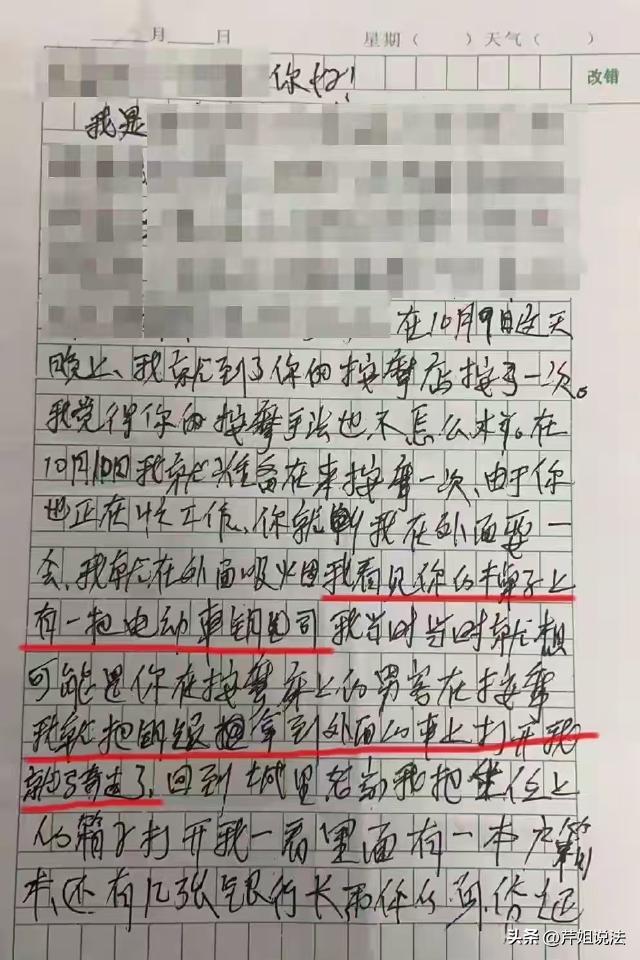 月 日 星期（ ）天气（ ）
你好！
改错
我是
在10月9日这天
晚上、我就到了你的按摩店按了一次。
我觉得你的按摩手法也不怎么本事。在
10月10日我就准备在来按摩一次、由于你
也正在忙工作、你就叫我在外面耍一
会、我就在外面吸火因我看见你的桌子上
有一把电动车钥匙 我当时当时就想
可能是你在按摩床上的男客在按摩
我就把钥匙拿到外面的车上打开我
就骑走了、回到城里 我把坐位上
的箱子打开我一看里面有一本户籍
本、还有几张银行 借
头条 @芹姐说法